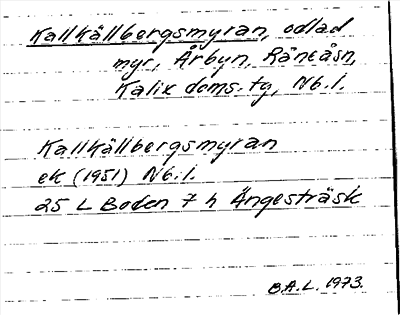 Kallkällbergsmyran, odlad
myr, Årbyn, Råneåsn,
Kalix doms. tg, Nb. l.
Kallkällbergsmyran
ek (1951) Nb. l.
25 L Boden 7 h Ängesträsk
B.A.L. 1973.